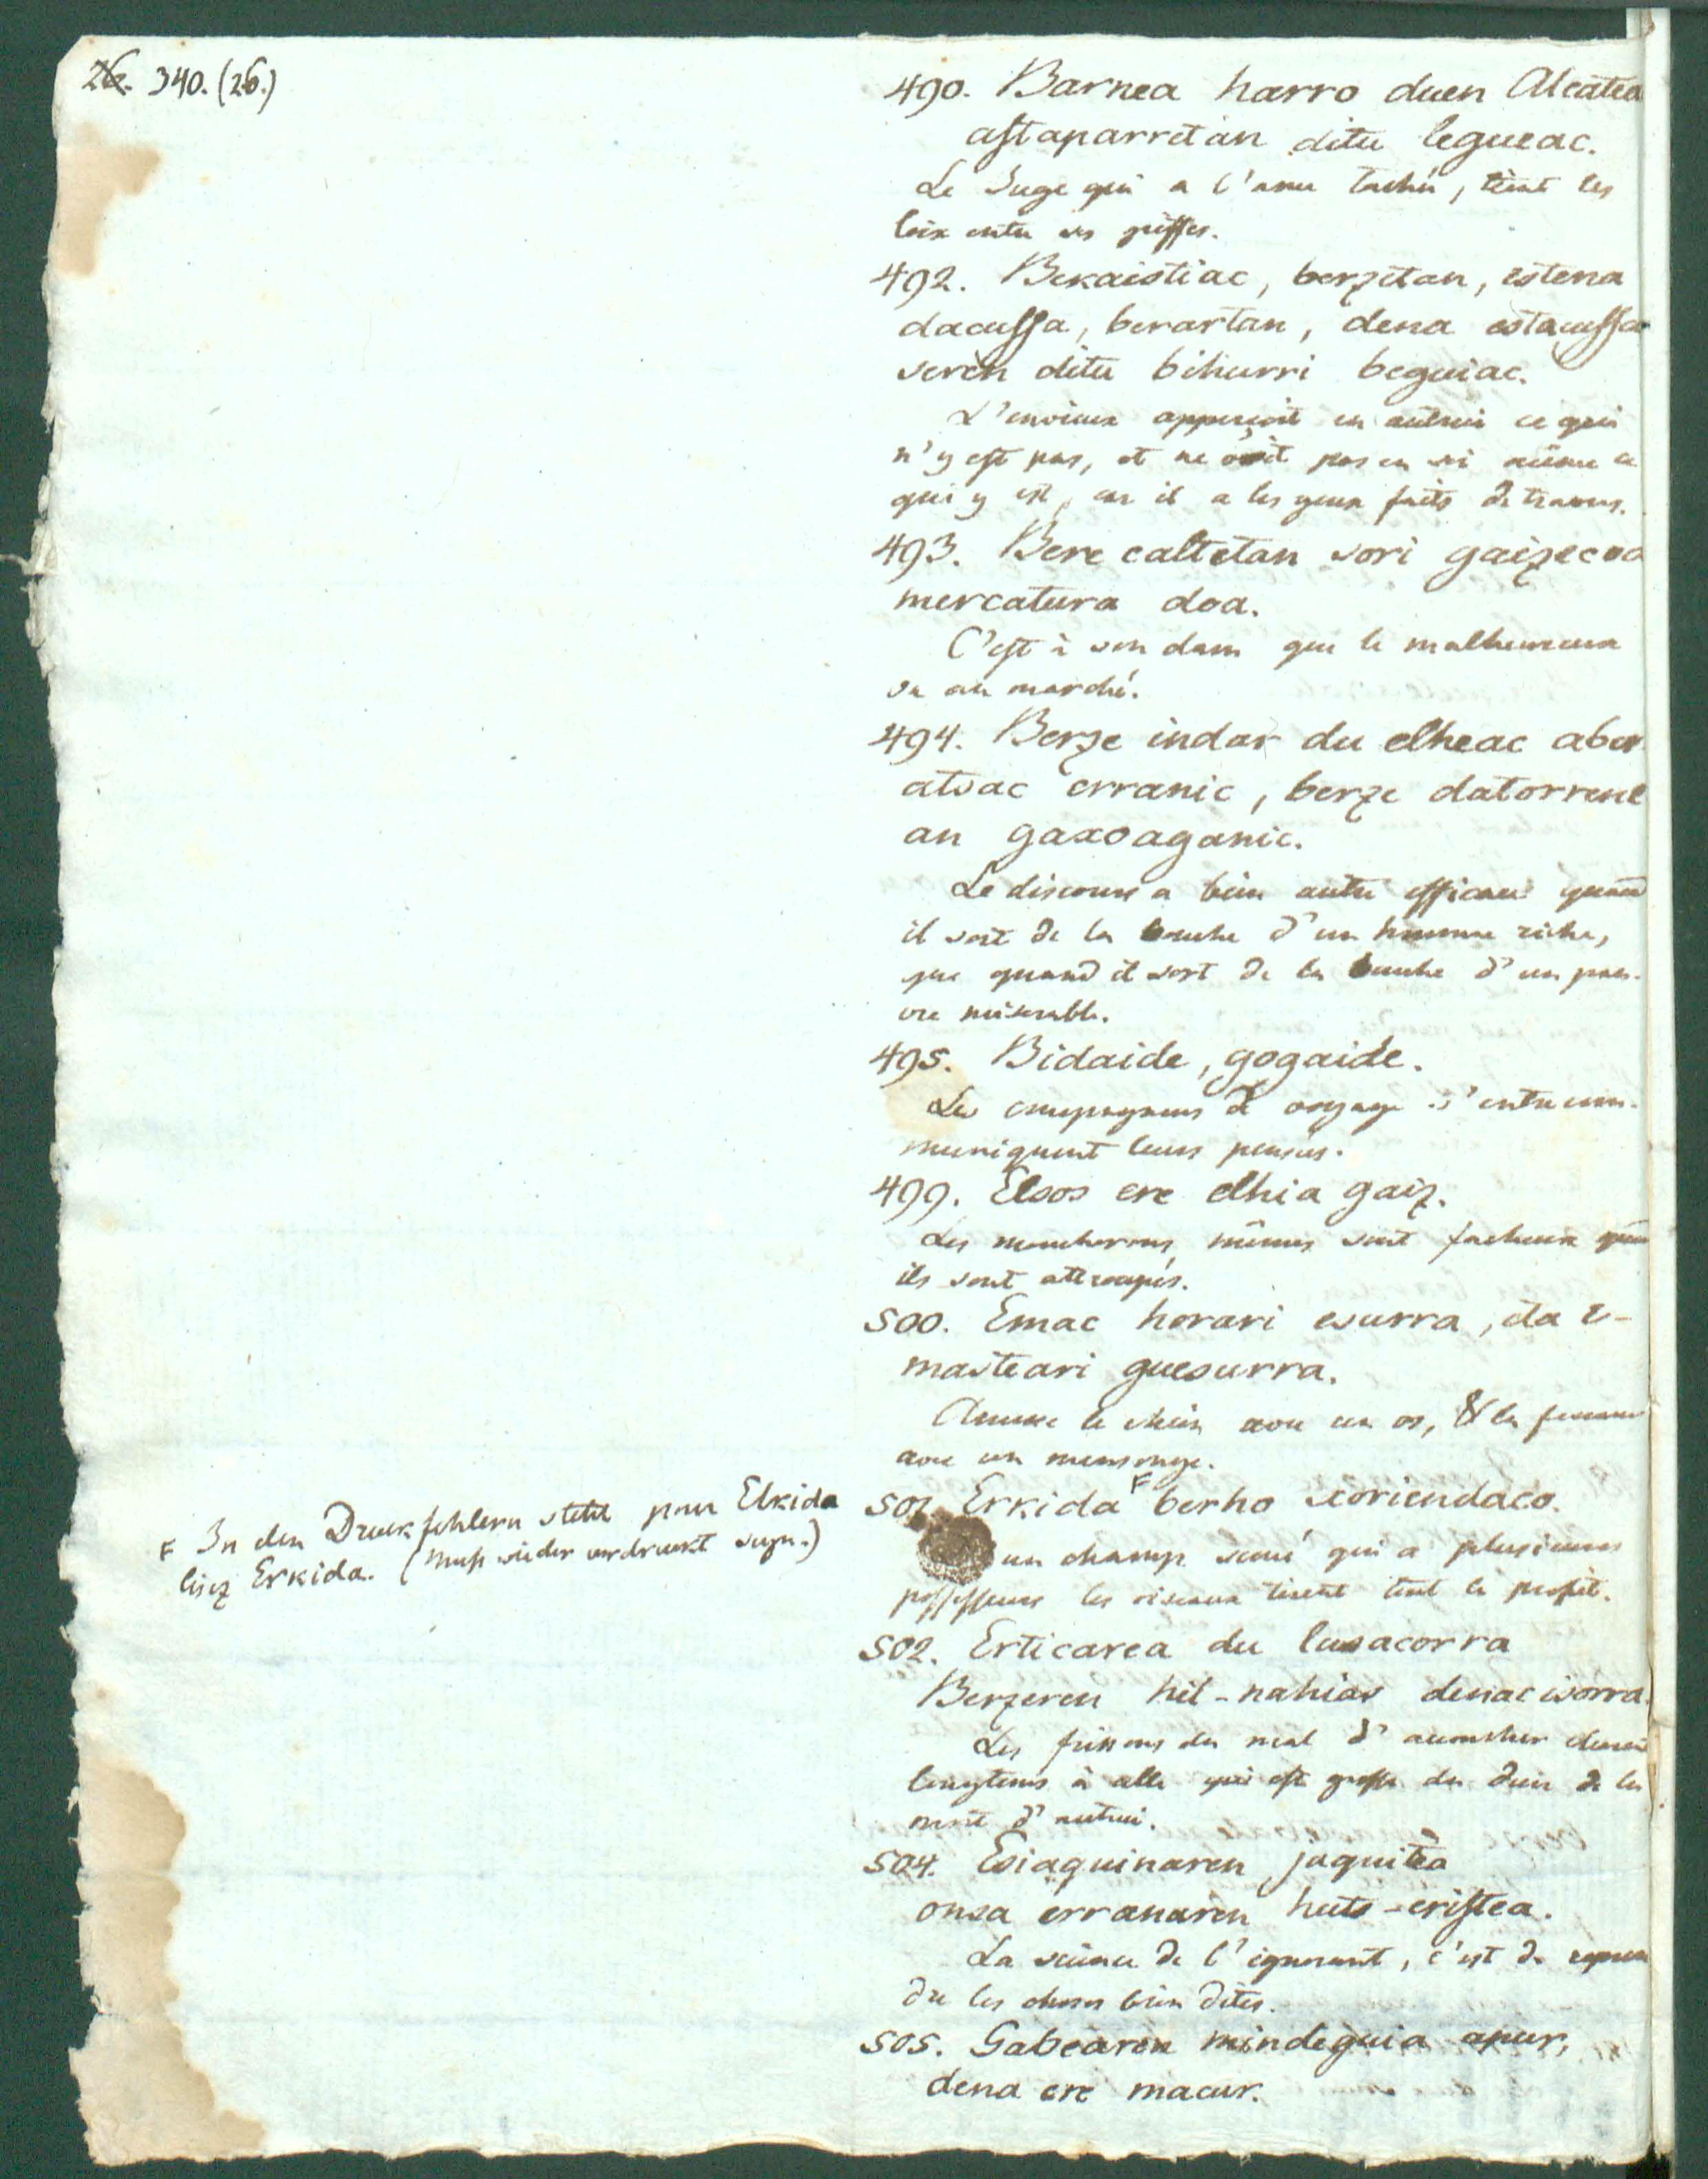 26. 340. (26.)
490. Barnea harro duen Alcatea
astaparretan ditu legueac.
Le Juge qui a l'ame tachée, tient les
loix entre ses griffes.
492. Bekaistiac, berzetan, estena
dacussa, berartan, dena estacussa
seren ditu bihurri beguiac.
L'envieux apperçoit en autrui ce qui
n'y est pas, et ne voit pas en soi même ce
qui y est, car il a les yeux faits de travers.
493. Bere caltetan sori gaizecoa
mercatura doa.
C'est à son dam que le malheureux
va au marché.
494. Berze indar du elheac aber
atsac erranic, berze datorrene
an gaxoaganic.
Le discours a bien autre efficace quand
il sort de la bouche d'un homme riche,
que quand il sort de la bouche d'un pau-
vre miserable.
495. Bidaide, gogaide.
Les compagnons de voyage s'entrecom-
muniquent leurs pensées.
499. Elsos ere elhia gaiz.
Les moucherons mêmes sont facheux quand
ils sont attroupés.
500. Emac horari esurra, eta e-
masteari guesurra.
Amuse le chien avec un os, & la femme
avec un mensonge.
501. Erkida F berho xoriendaco.
un champ semé qui a plusieurs
possesseurs les oiseaux tirent tout le profit.
F In den Druckfehlern steht pour Elkida
lisez Erkida. (Muß wieder verdruckt seyn.)
502. Erticarea du lusacorra
Berzeren hil-nahias denac isorra.
Les frissons du mal d'accoucher durent
longtems à celle qui est grosse du desir de la
mort d'autrui.
504. Esiaquinaren jaquitea
onsa erranaren huts-eristea.
La science de l'ignorant, c'est de repren
dre les choses bien dites.
505. Gabearen mindeguia apur,
dena ere macur.